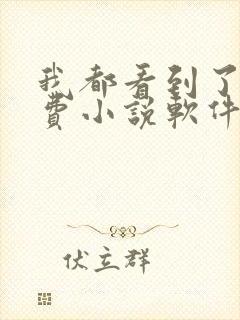 我都看到了
費小說軟件
伏立群